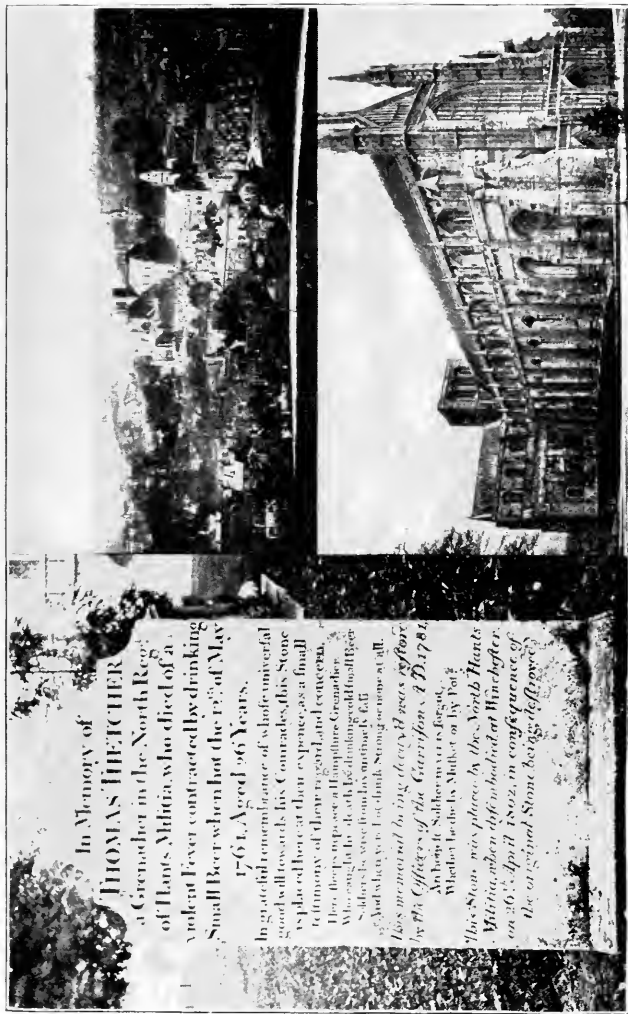 In Memory of
THOMAS THETCHER
a Grenadier in the North Regt.
of Hants Militia, who died of a
violent Fever contracted by drinking
Small Beer when hot the 12th of May
1764. Aged 26 Years.
In grateful remembrance of whose universal
good will towards his Comrades, this Stone
is placed here at their expence, as a small
testimony of their regard and concern.
Here sleeps in peace a Hampshire Grenadier,
Who caught his death by drinking cold small Beer
Soldiers be wise from his untimely fall
And when ye're hot drink Strong or none at all.
This memorial being decay'd was restor'd
by the Officers of the Garrison A.D. 1781.
An honest Soldier never is forgot,
Whether he die by Musket or by Pot.
This Stone was placed by the North Hants
Militia, when disembodied at Winchester,
on 26th April 1802, in consequence of
the original Stone being destroyed